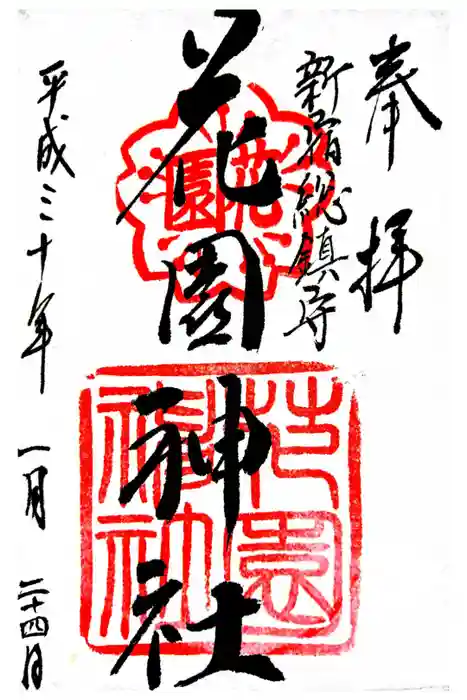 奉拝
新宿総鎮守
花園神社
平成三十年 一月 二十四日